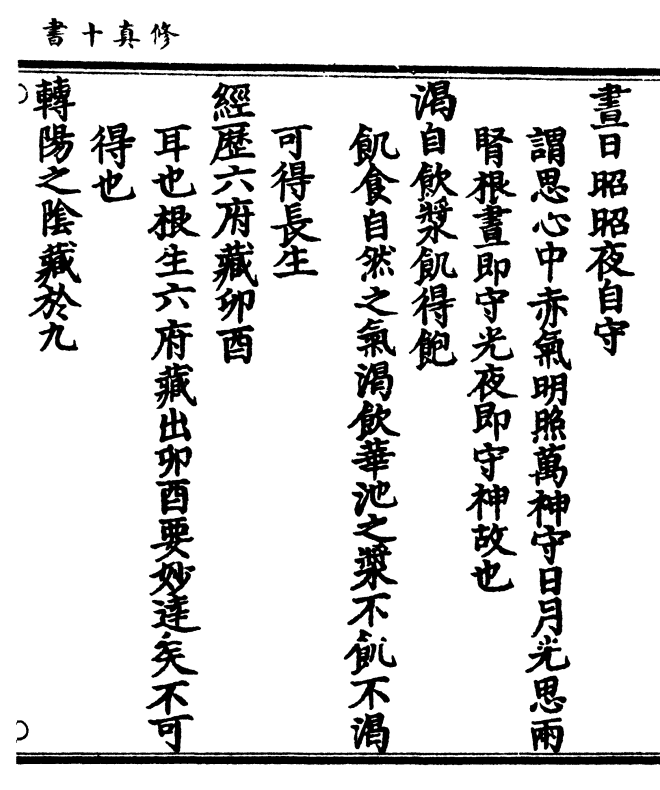 修真十書
晝日昭昭夜自守
謂思心中赤氣明照萬神守日月光思兩
腎根晝即守光夜即守神故也
渴自飲漿飢得飽
飢食自然之氣渴飲華池之漿不飢不渴
可得長生
經歷六府藏卯酉
耳也根生六府藏出卯酉要妙達矣不可
得也
轉陽之陰藏於九